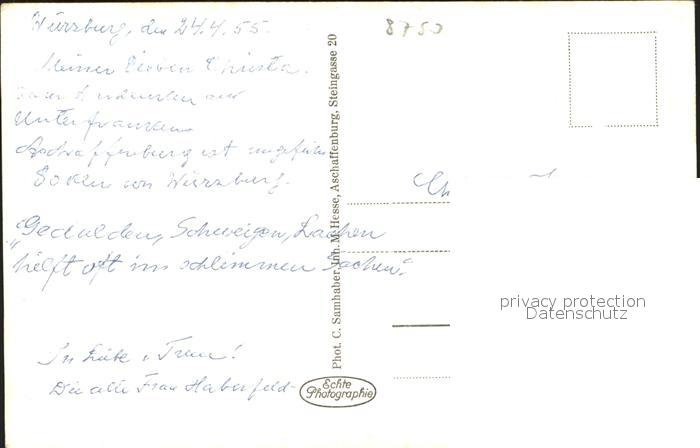 Würzburg, den 24.4.55.
8750
Meiner lieben Christa.
Andenken aus
Unterfranken
Aschaffenburg ist ungefähr
80 km von Würzburg.
"Gedulden, Schweigen, Lachen
hilft oft in schlimmen Sachen."
In Liebe u. Treue!
Die alte Frau Haberfeld-
Phot. C. Samhaber, Inh. M. Hesse, Aschaffenburg, Steingasse 20
Echte
Photographie
privacy protection
Datenschutz